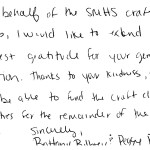 behalf of the SMHS craft
, I would like to extend
est gratitude for your gen
tion. Thanks to your kindness,
be able to fund the craft cl
ties for the remainder of the
Sincerely,
Brittany